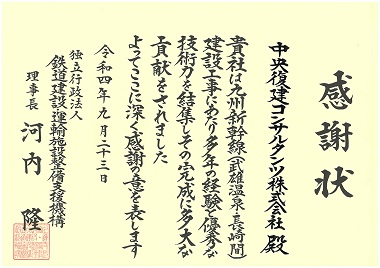 感謝状
中央復建コンサルタンツ株式会社 殿
貴社は九州新幹線(武雄温泉・長崎間)
建設工事にあたり多年の経験と優秀な
技術力を結集しその完成に多大な
貢献をされました
よってここに深く感謝の意を表します
令和四年九月二十三日
独立行政法人
鉄道建設・運輸施設整備支援機構
理事長 河内 隆